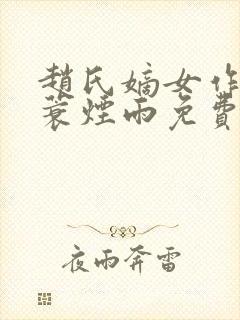 趙氏嫡女作
蓑煙雨免費
夜雨奔雷